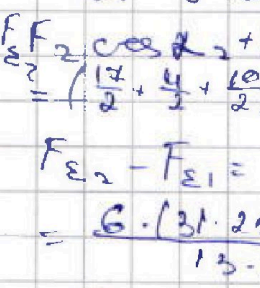 F_ε F_2 cos α_2 +
= ( 17/2 + 4/2 + 10/2
F_ε2 - F_ε1 =
= 6 · (31 · 2 / 13 ·